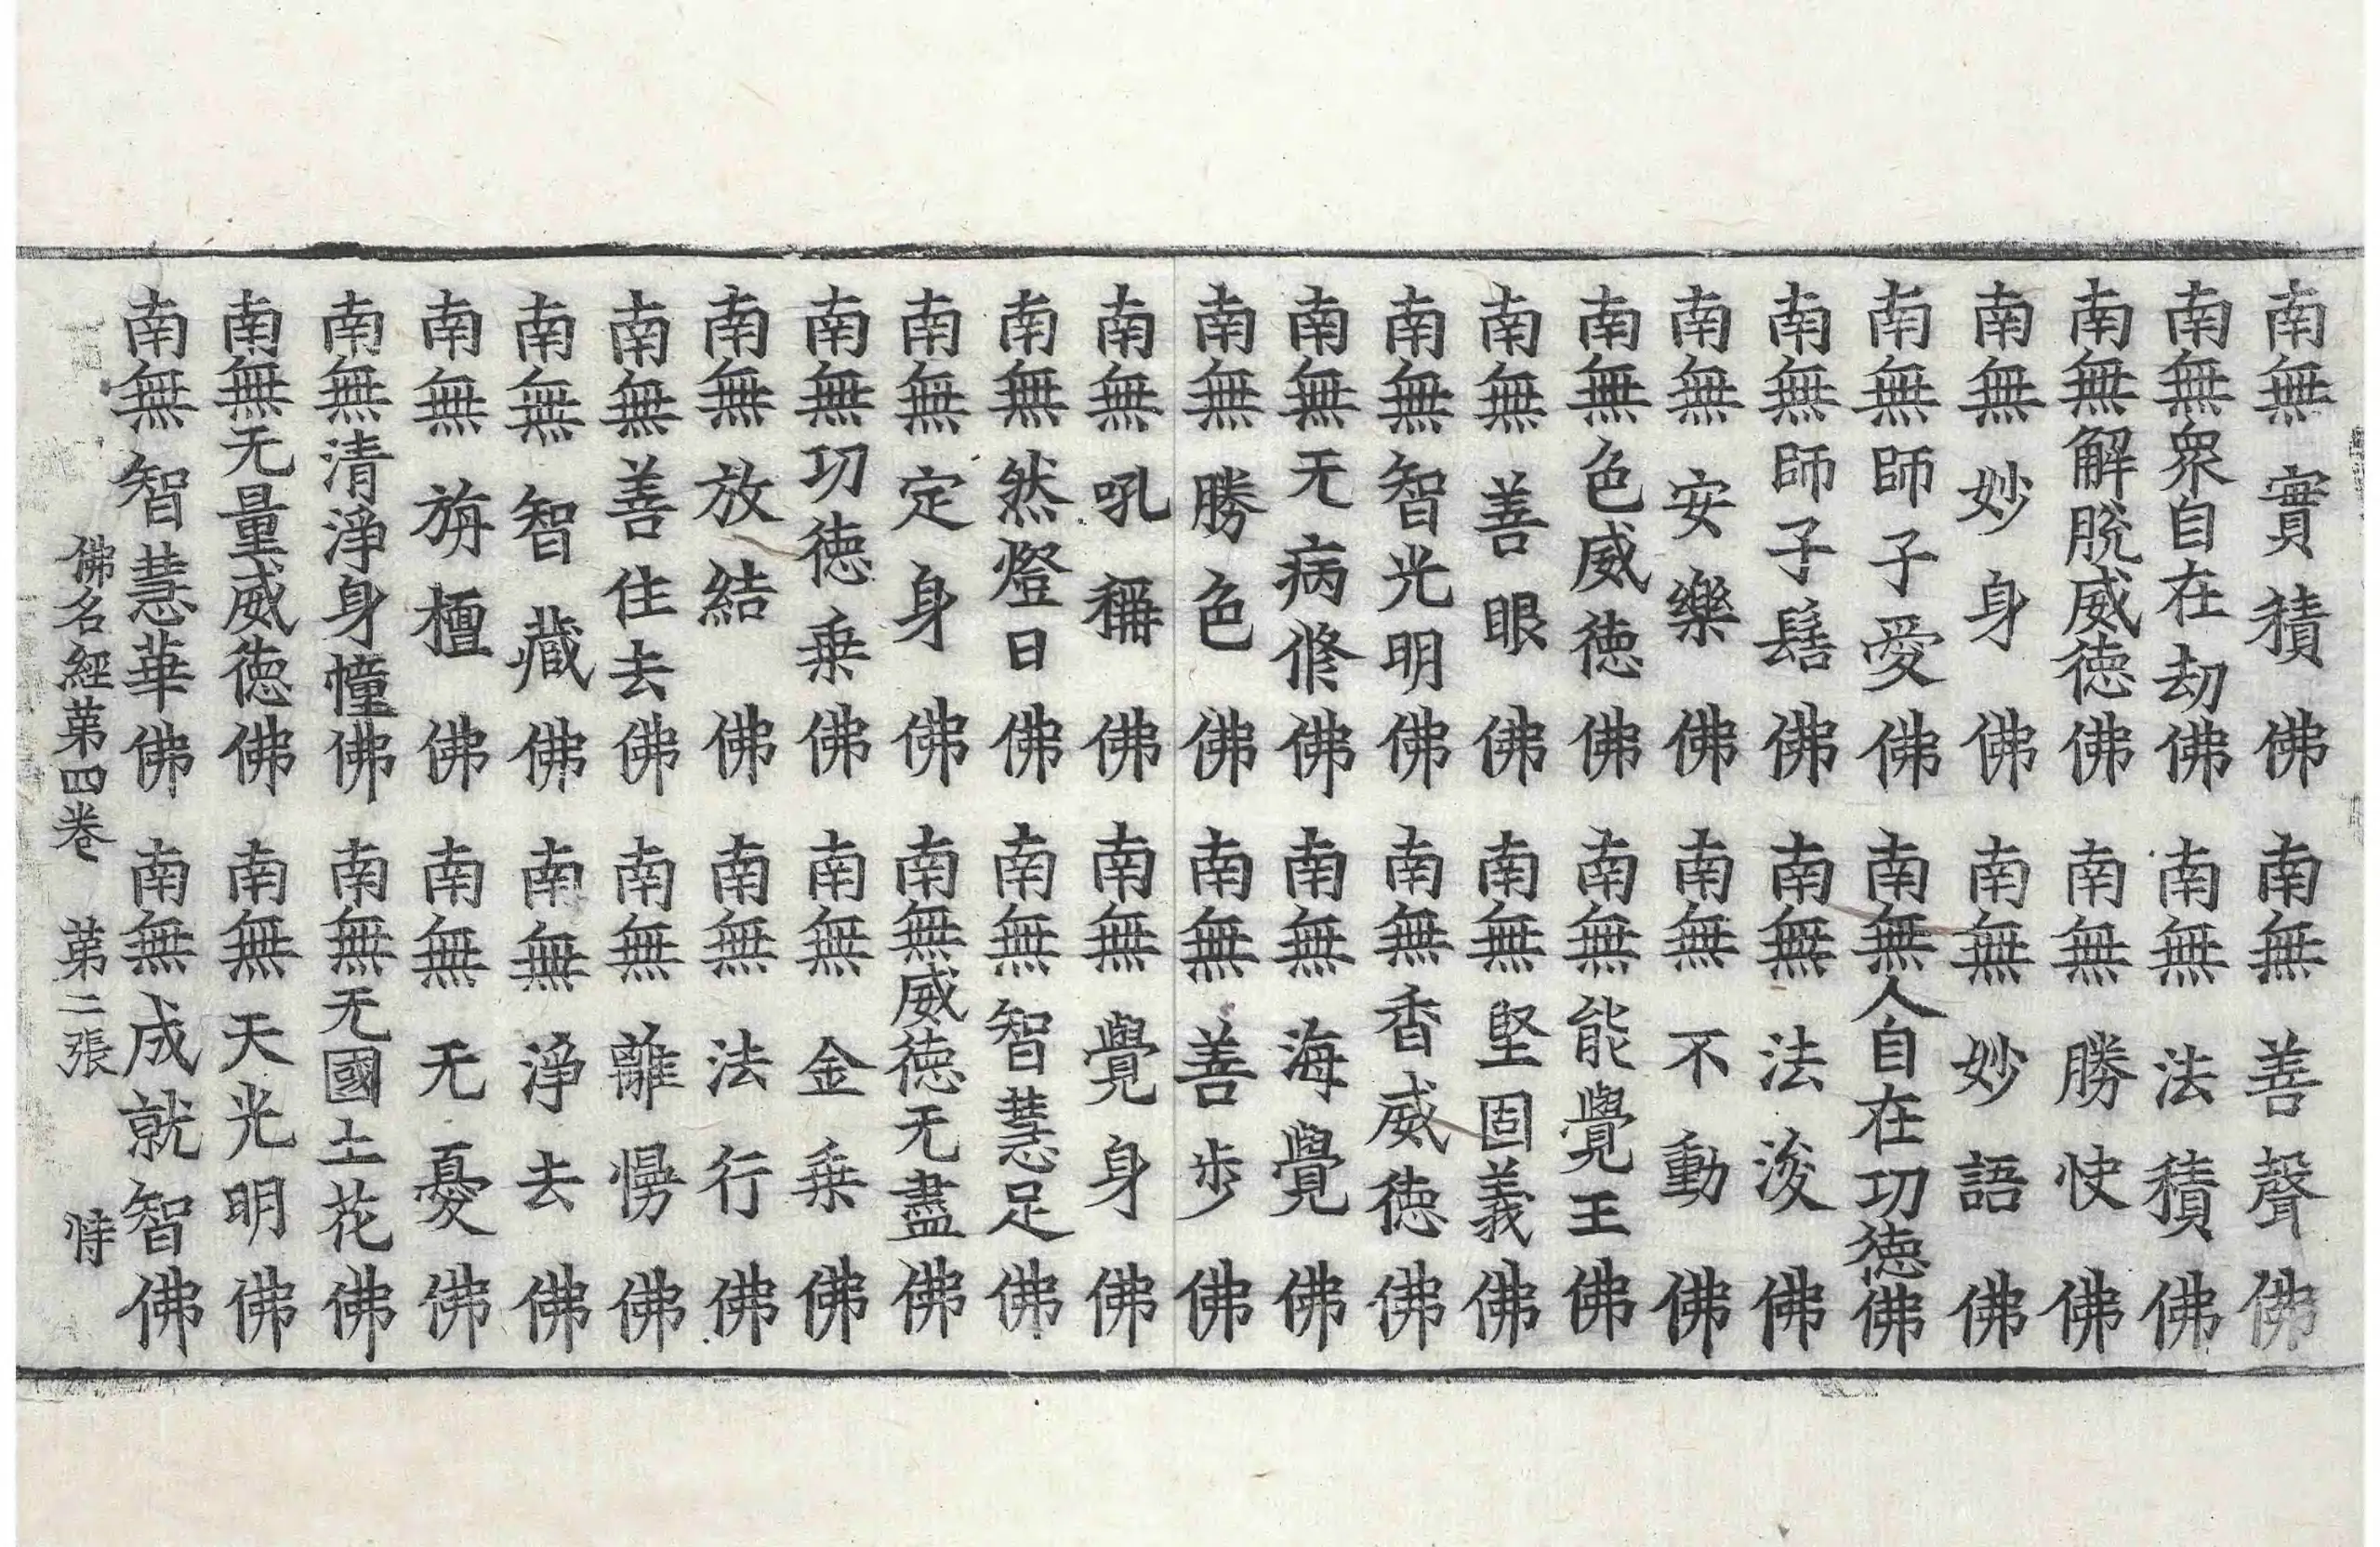 南無實積佛南無善聲佛
南無衆自在劫佛南無法積佛
南無解脫威德佛南無勝快佛
南無妙身佛南無妙語佛
南無師子愛佛南無人自在功德佛
南無師子髻佛南無法浚佛
南無安樂佛南無不動佛
南無色威德佛南無能覺王佛
南無善眼佛南無堅固義佛
南無智光明佛南無香威德佛
南無无病脩佛南無海覺佛
南無勝色佛南無善步佛
南無吼稱佛南無覺身佛
南無然燈日佛南無智慧足佛
南無定身佛南無威德无盡佛
南無功德乗佛南無金乗佛
南無放結佛南無法行佛
南無善住去佛南無離慢佛
南無智藏佛南無淨去佛
南無旃檀佛南無无憂佛
南無清淨身幢佛南無无國土花佛
南無无量威德佛南無天光明佛
南無智慧華佛南無成就智佛
佛名經第四卷 第二張 恃